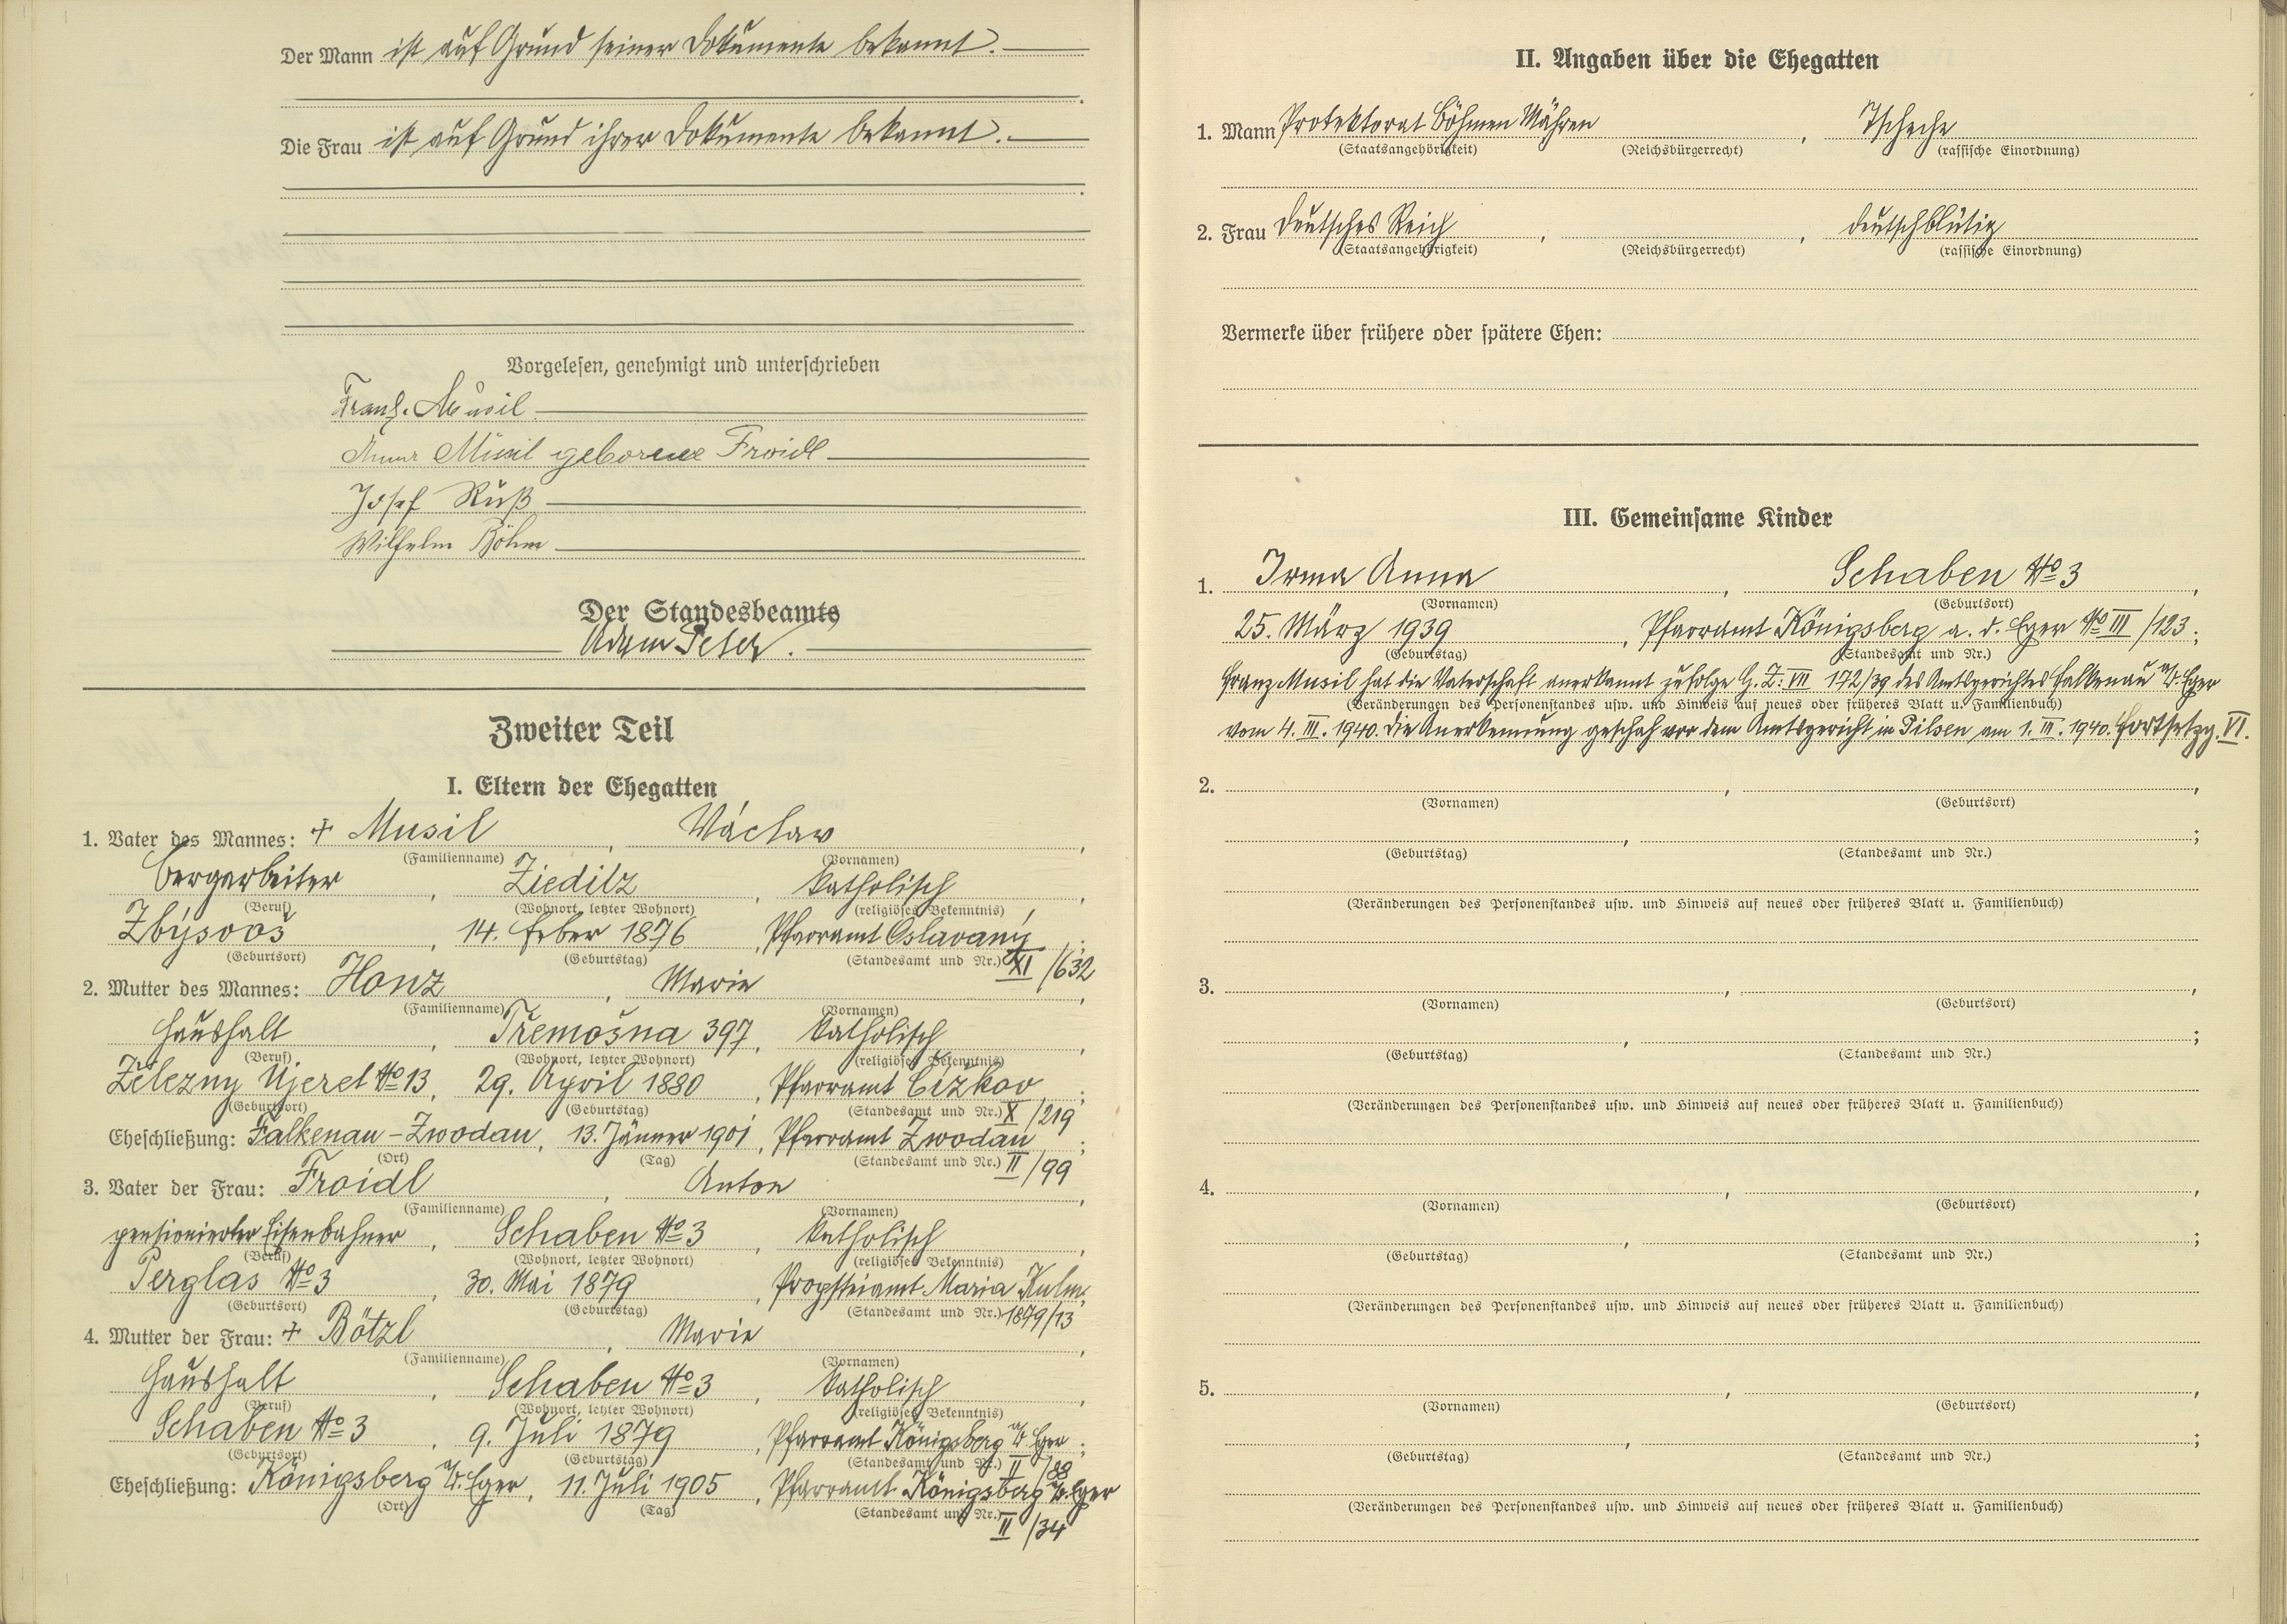 Der Mann ist auf Grund seiner Dokumente bekannt.
Die Frau ist auf Grund ihrer Dokumente bekannt.
Vorgelesen, genehmigt und unterschrieben
Franz Musil
Anna Musil geborene Froidl
Josef Ruß
Wilhelm Böhm
Der Standesbeamte
Adam Peter.
Zweiter Teil
I. Eltern der Ehegatten
1. Vater des Mannes: + Musil, Václav,
(Familienname) (Vornamen)
Bergarbeiter, Zieditz, katholisch,
(Beruf) (Wohnort, letzter Wohnort) (religiöses Bekenntnis)
Zbýsov, 14. Feber 1876, Pfarramt Oslavany;
(Geburtsort) (Geburtstag) (Standesamt und Nr.) XI/632
2. Mutter des Mannes: Honz, Marie,
(Familienname) (Vornamen)
Haushalt, Třemošna 397, katholisch,
(Beruf) (Wohnort, letzter Wohnort) (religiöses Bekenntnis)
Železny Ujezd No 13, 29. April 1880, Pfarramt Čížkov;
(Geburtsort) (Geburtstag) (Standesamt und Nr.) X/219
Eheschließung: Falkenau-Zwodau, 13. Jänner 1901, Pfarramt Zwodau;
(Ort) (Tag) (Standesamt und Nr.) II/99
3. Vater der Frau: Froidl, Anton,
(Familienname) (Vornamen)
pensionierter Eisenbahner, Schaben No 3, katholisch,
(Beruf) (Wohnort, letzter Wohnort) (religiöses Bekenntnis)
Perglas No 3, 30. Mai 1879, Propsteiamt Maria Kulm;
(Geburtsort) (Geburtstag) (Standesamt und Nr.) 1879/13
4. Mutter der Frau: + Bötzl, Marie,
(Familienname) (Vornamen)
Haushalt, Schaben No 3, katholisch,
(Beruf) (Wohnort, letzter Wohnort) (religiöses Bekenntnis)
Schaben No 3, 9. Juli 1879, Pfarramt Königsberg a/d. Eger;
(Geburtsort) (Geburtstag) (Standesamt und Nr.) II/88
Eheschließung: Königsberg a/d. Eger, 11. Juli 1905, Pfarramt Königsberg a/d. Eger
(Ort) (Tag) (Standesamt und Nr.) II/34
II. Angaben über die Ehegatten
1. Mann Protektorat Böhmen Mähren, Tscheche
(Staatsangehörigkeit) (Reichsbürgerrecht) (rassische Einordnung)
2. Frau Deutsches Reich, , deutschblütig
(Staatsangehörigkeit) (Reichsbürgerrecht) (rassische Einordnung)
Vermerke über frühere oder spätere Ehen:
III. Gemeinsame Kinder
1. Irma Anna, Schaben No 3,
(Vornamen) (Geburtsort)
25. März 1939, Pfarramt Königsberg a. d. Eger No III/123;
(Geburtstag) (Standesamt und Nr.)
Franz Musil hat die Vaterschaft anerkannt zufolge G. Z: VII 172/39 des Amtsgerichtes Falkenau a/d. Eger
(Veränderungen des Personenstandes usw. und Hinweis auf neues oder früheres Blatt u. Familienbuch)
vom 4. III. 1940. Die Anerkennung geschah vor dem Amtsgericht in Pilsen am 1. III. 1940. Fortsetzg. VI.
2. , ,
(Vornamen) (Geburtsort)
, ;
(Geburtstag) (Standesamt und Nr.)
(Veränderungen des Personenstandes usw. und Hinweis auf neues oder früheres Blatt u. Familienbuch)
3. , ,
(Vornamen) (Geburtsort)
, ;
(Geburtstag) (Standesamt und Nr.)
(Veränderungen des Personenstandes usw. und Hinweis auf neues oder früheres Blatt u. Familienbuch)
4. , ,
(Vornamen) (Geburtsort)
, ;
(Geburtstag) (Standesamt und Nr.)
(Veränderungen des Personenstandes usw. und Hinweis auf neues oder früheres Blatt u. Familienbuch)
5. , ,
(Vornamen) (Geburtsort)
, ;
(Geburtstag) (Standesamt und Nr.)
(Veränderungen des Personenstandes usw. und Hinweis auf neues oder früheres Blatt u. Familienbuch)